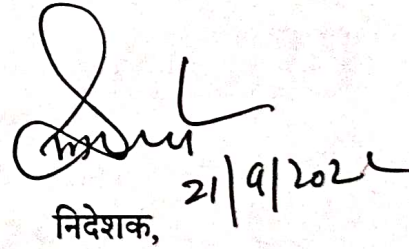 21/9/2022
निदेशक,